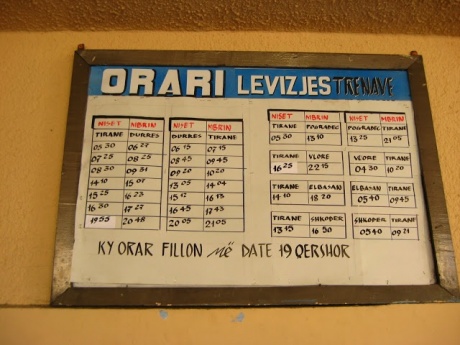 ORARI LEVIZJES TRENAVE
NISET MBRIN NISET MBRIN NISET MBRIN NISET MBRIN
TIRANE DURRES DURRES TIRANE TIRANE POGRADEC POGRADEC TIRANE
05 30 06 27 06 15 07 15 05 30 13 10 13 25 21 05
07 25 08 25 08 45 09 45
08 30 09 31 09 20 10 20 TIRANE VLORE VLORE TIRANE
14 10 15 07 13 05 14 04 16 25 22 15 04 30 10 20
15 25 16 23 15 12 16 13 TIRANE ELBASAN ELBASAN TIRANE
16 30 17 27 16 45 17 43 14 10 18 20 05 40 09 45
19 55 20 48 20 05 21 05 TIRANE SHKODER SHKODER TIRANE
13 15 16 50 05 40 09 21
KY ORAR FILLON më DATE 19 QERSHOR